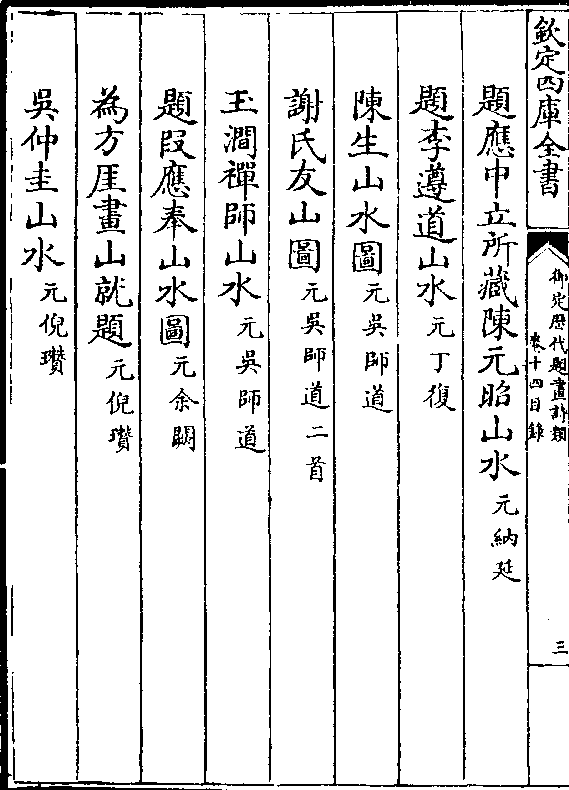 欽定四庫全書
御定歷代題畫詩類
卷十四目錄
三
題應中立所藏陳元昭山水 元納延
題李遵道山水 元丁復
陳生山水圖 元吳師道
謝氏友山圖 元吳師道二首
玉澗禪師山水 元吳師道
題段應奉山水圖 元余闕
為方厓畫山就題 元倪瓚
吳仲圭山水 元倪瓚